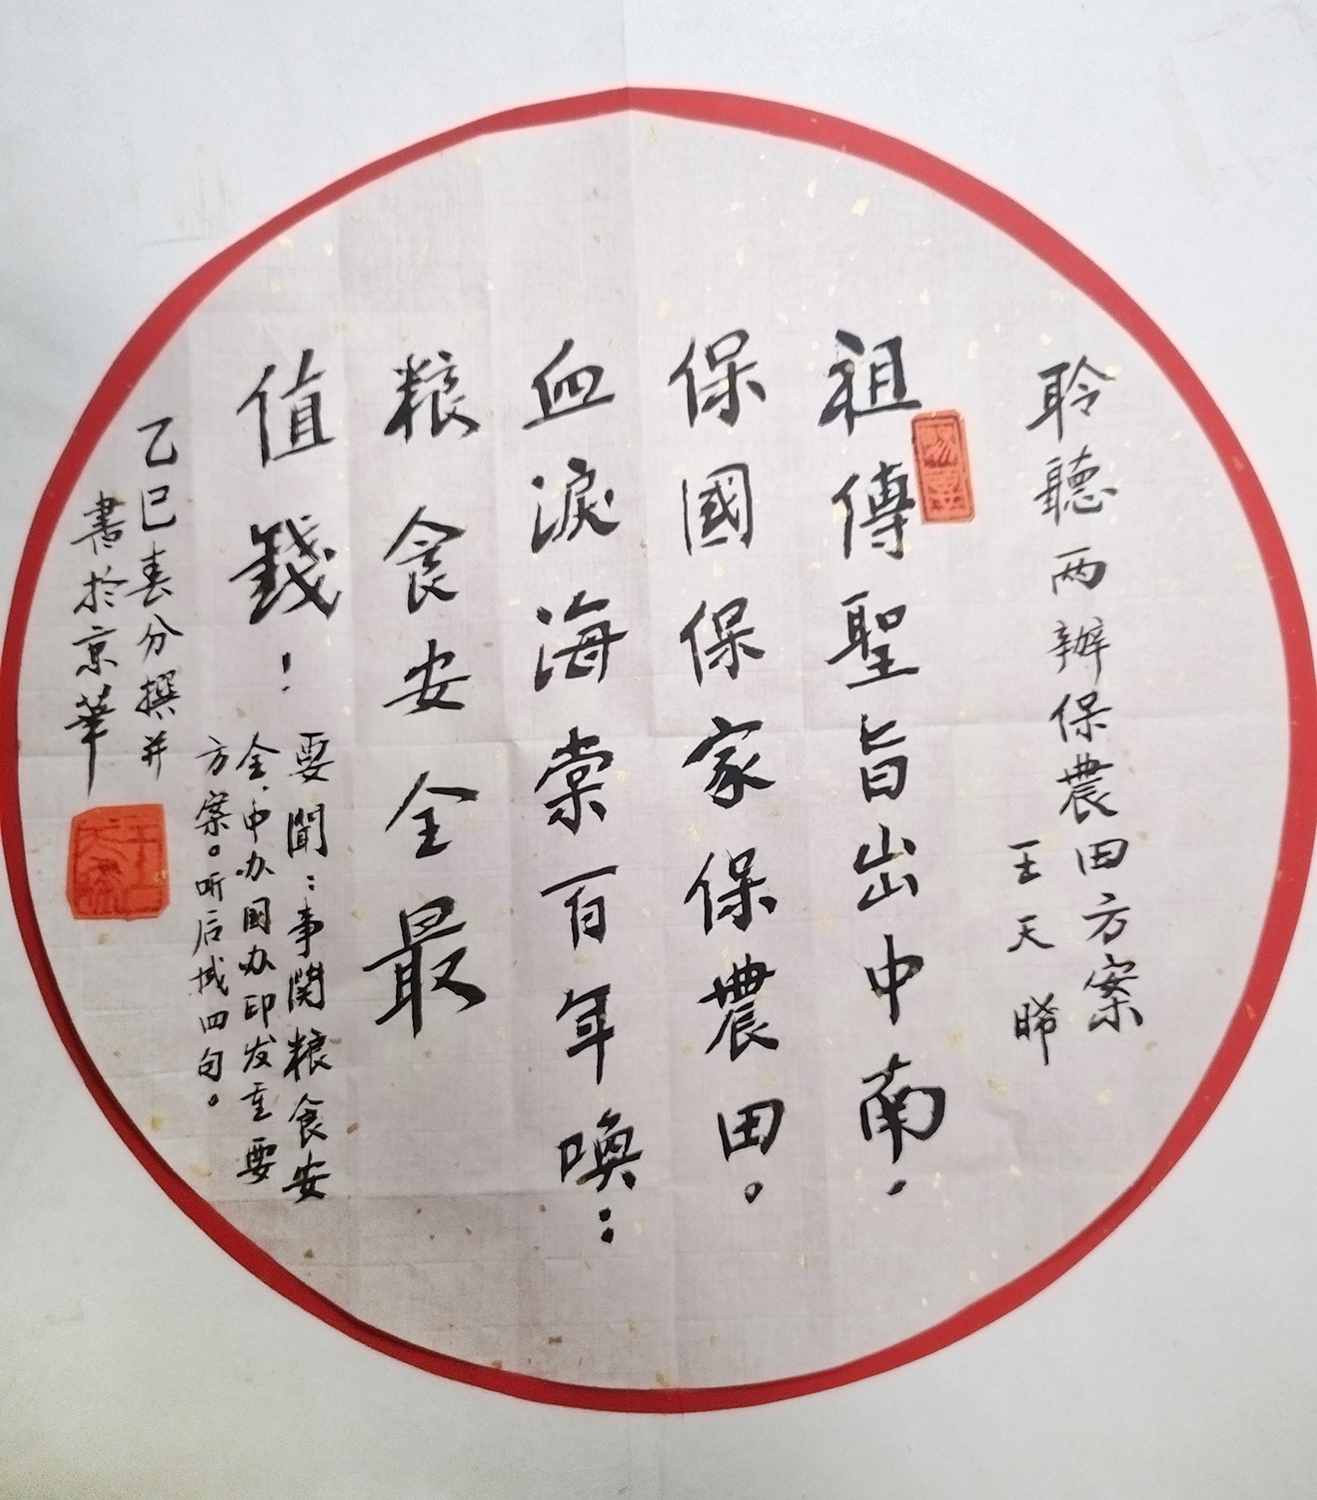 聆聽兩辦保農田方案
王天晞
祖傳聖旨出中南.
保國保家保農田。
血淚海棠百年喚:
粮食安全最
值錢!
要聞:事関粮食安
全,中办国办印发重要
方案。听后成四句。
乙巳春分撰并
書於京華